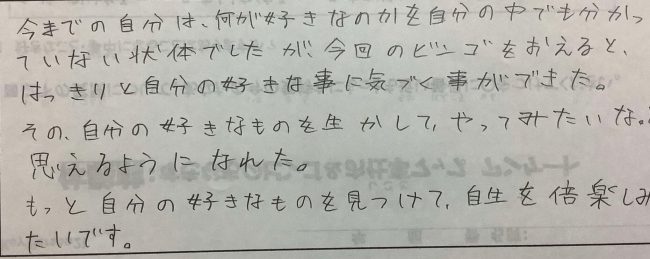 今までの自分は、何が好きなのかを自分の中でも分かっ
ていない状体でしたが、今回のビンゴをおえると、
はっきりと自分の好きな事に気づく事ができた。
その、自分の好きなものを生かして、やってみたいな。と
思えるようになれた。
もっと自分の好きなものを見つけて、自生を倍楽しみ
たいです。